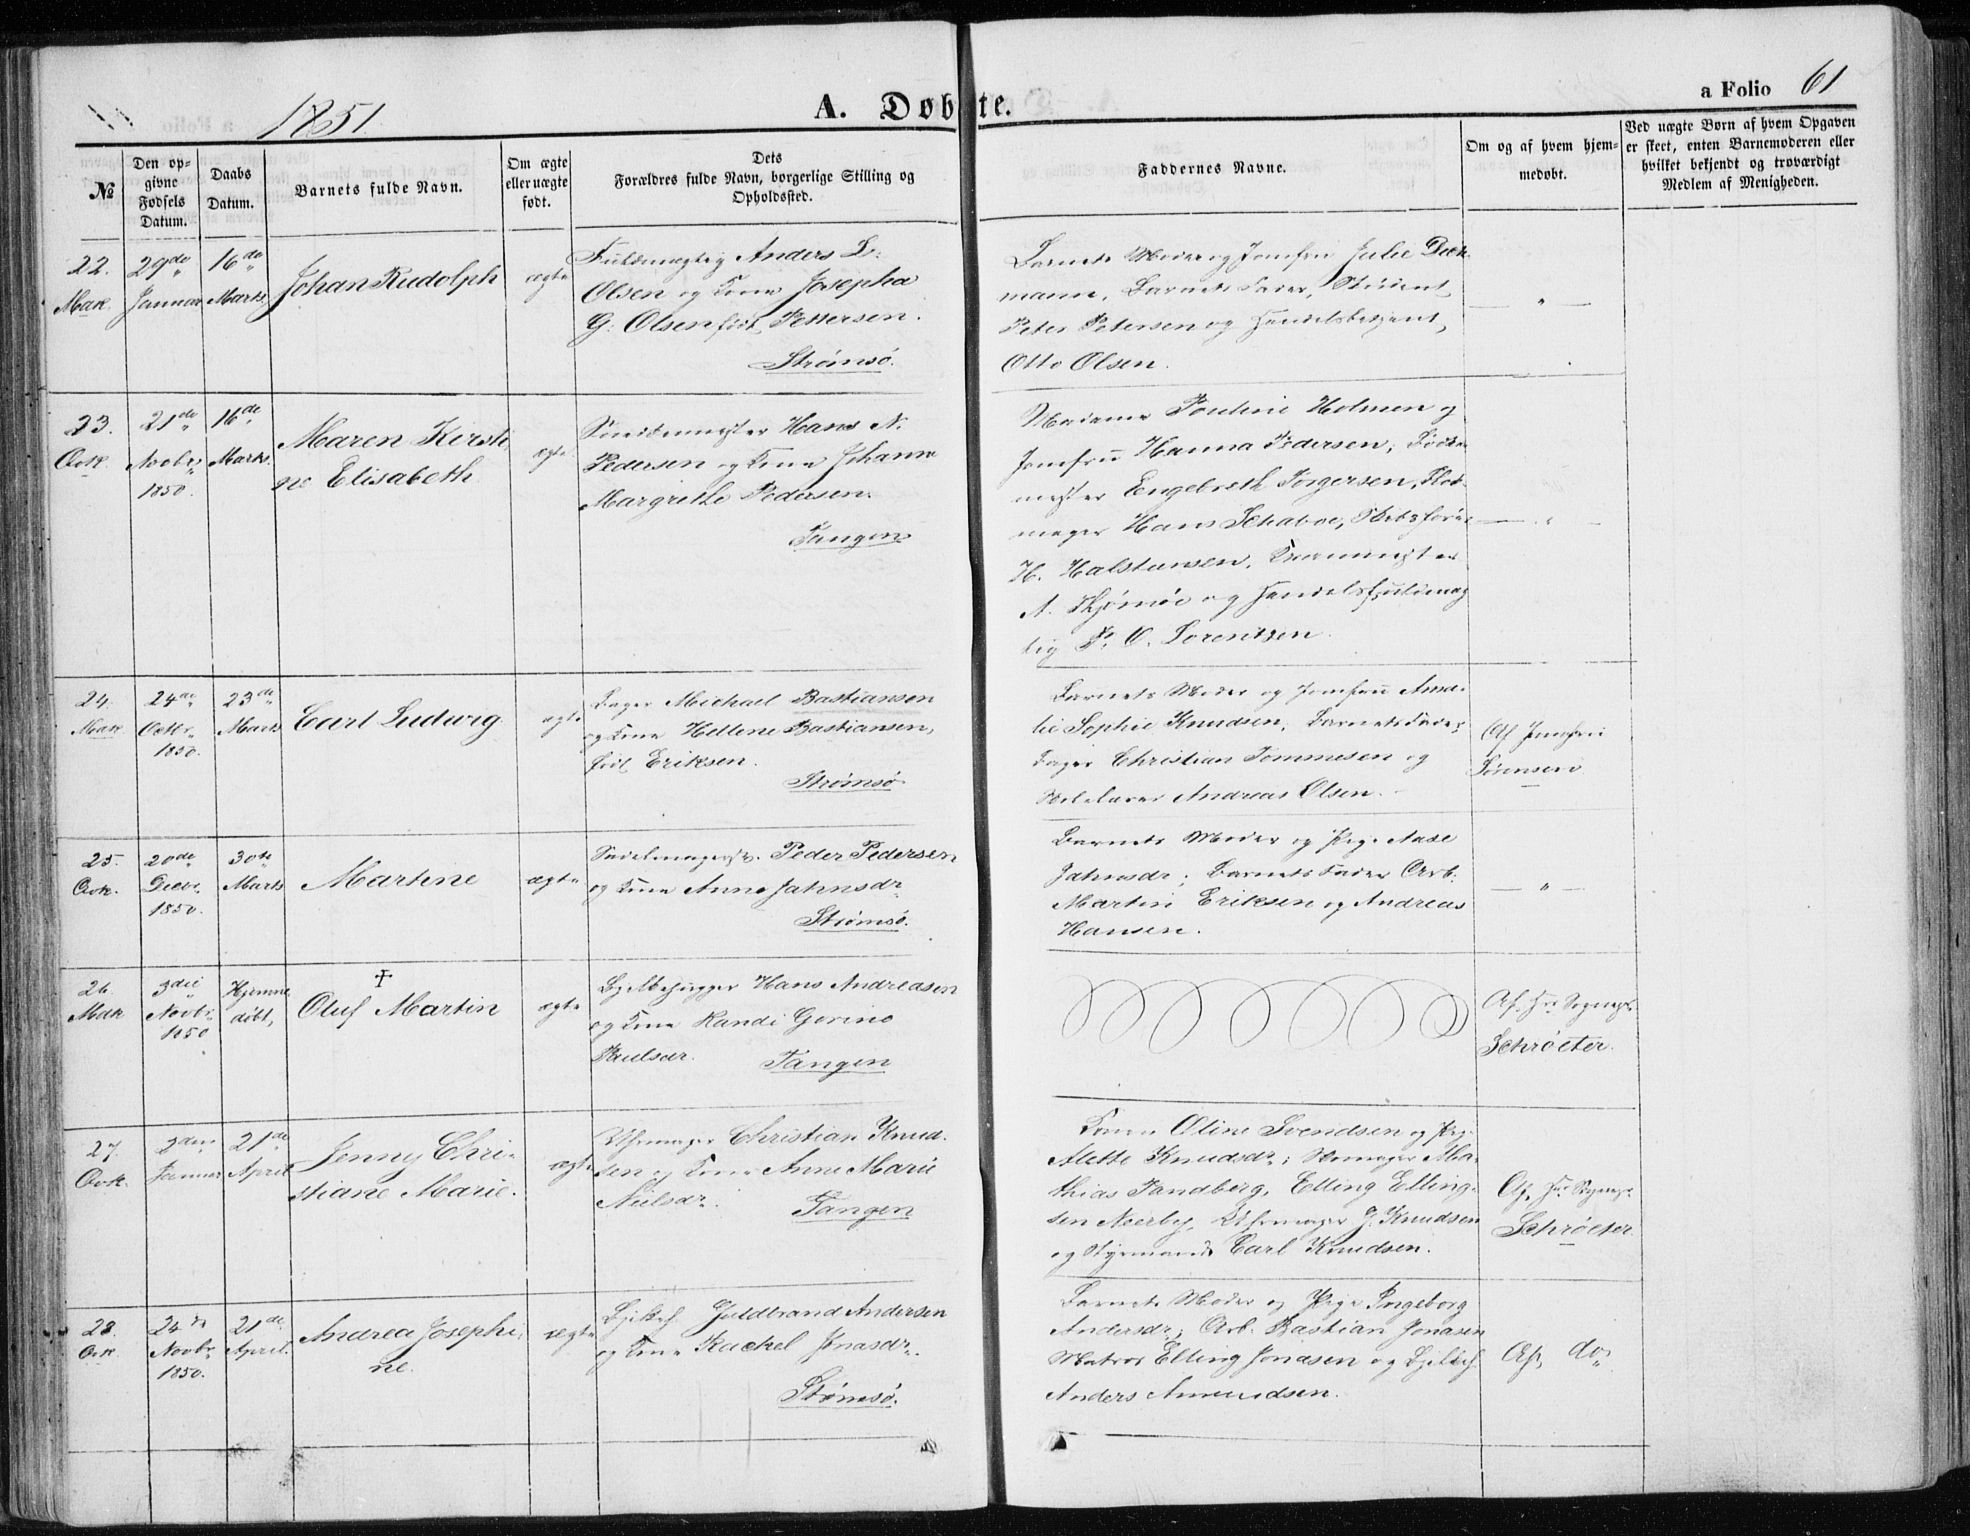 1851.
A. Døbte.
a Folio 61
№
Den op-
givne
Fødsels
Datum.
Daabs
Datum.
Barnets fulde Navn.
Om ægte
eller uægte
født.
Dets
Forældres fulde Navn, borgerlige Stilling og
Opholdssted.
Faddernes Navne.
Om og af hvem hjem-
medøbt.
Ved uægte Børn af hvem Opgaven
er skeet, enten Barnemoderen eller
hvilket bekjendt og troværdigt
Medlem af Menigheden.
22.
29de
Januar
16de
Marts
Johan Rudolph
ægte
Fuldmægtig Anders L:
Olsen og Kone Josepha
G: Olsen født Pettersen.
Strømsø.
Barnets Moder og Jomfru Julie
Barnets Fader, Student
Peter Petersen og Handelsbetjent
Otto Olsen.
23.
21de
Novbr.
1850.
16de
Marts.
Maren Kirsti-
ne Elisabeth
ægte
Hans N.
Pedersen og Kone Johanne
Margrethe Pedersen.
Tangen
Madame Pouline Holmen og
Jomfru Hanna Pedersen,
Engebreth Torgersen,
Hans
H. Halstensen,
A. og Handelsfuldmæg-
tig P. C. Lorentzen.
24.
24de
Octbr.
1850.
23de
Marts
Carl Ludwig
ægte
Michael Bastiansen
og Kone Hellene Bastiansen,
født Eriksen.
Strømsø
Barnets Moder og Jomfru Ama-
lie Sophie Knudsen, Barnets Fader,
Christian Tommesen og
Andreas Olsen.
Af Jomfru
Sørensen
25.
20de
Decbr.
1850.
30te
Marts
Martine
ægte
Peder Pedersen
og Kone Anne Jahnsdr.
Strømsø.
Barnets Moder og Pige Aase
Jahnsdr; Barnets Fader Arb.
Martin Eriksen og Andreas
Hansen.
26.
3die
Novbr.
1850
Hjemme
døbt,
Oluf Martin
ægte
Hans Andreasen
og Kone Randi Gorine
Tangen
Af Hr. Sognepr.
Schrøeter.
27.
3die
Januar
21de
April
Jenny Chri-
stiane Marie.
ægte
Uhrmager Christian Knud-
sen og Kone Anne Marie
Nielsdr.
Tangen
Kone Oline Svendsen og Pige
Alette Knudsdr.; Ma-
thias Sandberg, Elling Elling-
sen Neerby, Uhrmager J. Knudsen
og Styrmand Carl Knudsen.
Af Hr. Sognepr.
Schrøeter.
28.
24de
Novbr.
1850.
21de
April.
Andrea Josephi-
ne.
ægte
Guldbrand Andersen
og Kone Rachel Jonasdr.
Strømsø.
Barnets Moder og Pige Ingeborg
Andersdr.; Arb. Bastian Jonasen
Matros Elling Jonasen og
Anders Amundsen.
Af do